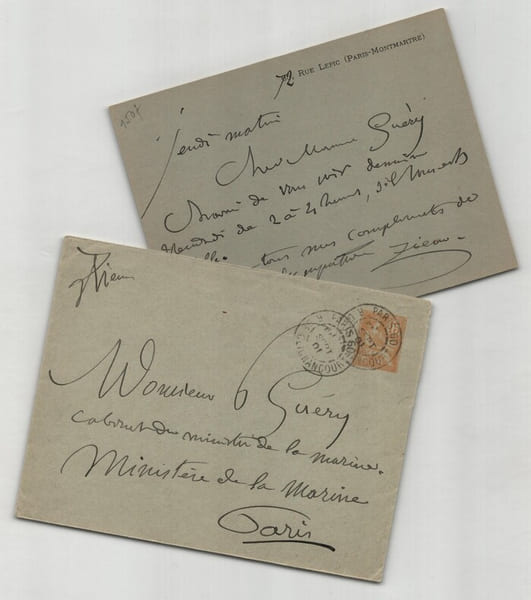 72 RUE LEPIC (PARIS-MONTMARTRE)
150f
Jeudi matin
Cher Monsieur Guéry
Charmé de vous voir demain
Vendredi de 2 à 4 heures, s'il vous est
tous nos compliments de
Ziem
Ziem
Monsieur Guéry
Cabinet du ministre de la marine.
Ministère de la Marine
Paris
PARIS
R. CLIGNANCOURT
PARIS